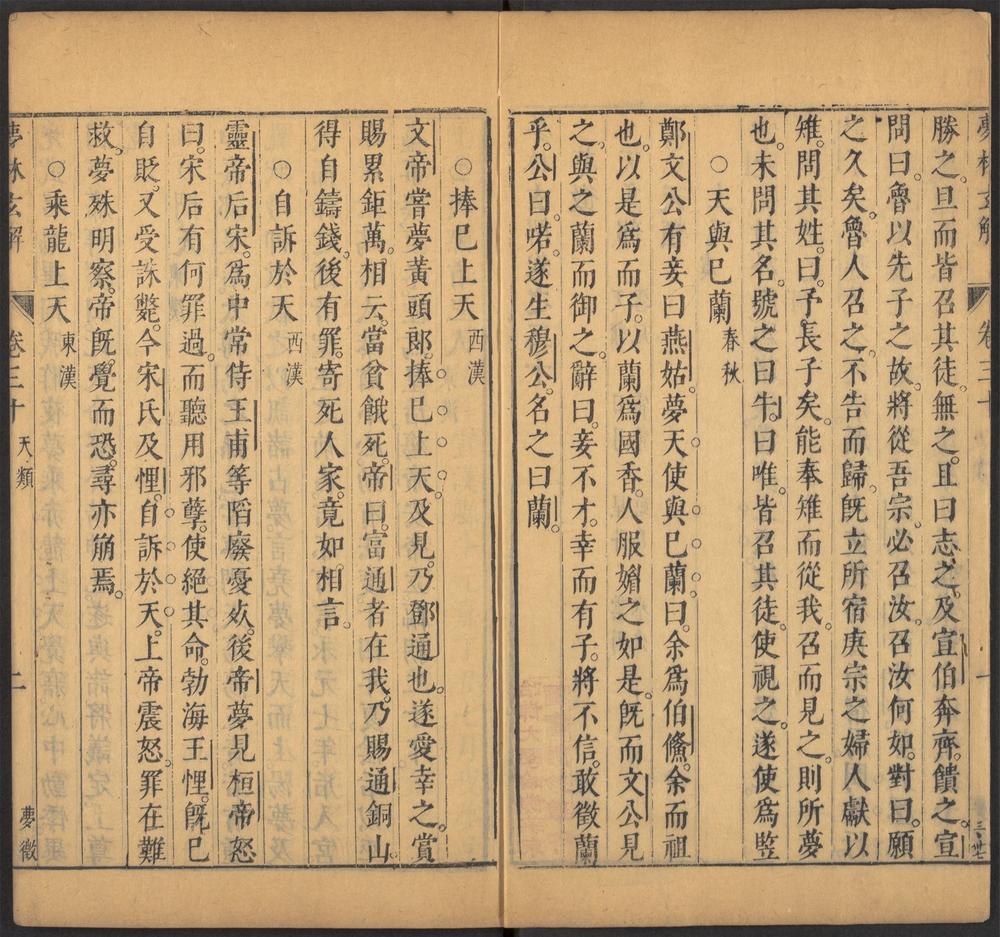 夢林玄解　卷三十　一
勝之。旦而皆召其徒。無之。且曰志之。及宣伯奔齊。饋之。宣
問曰。魯以先子之故。將從吾宗。必召汝。召汝何如。對曰。願
之久矣。魯人召之。不告而歸。旣立所宿庚宗之婦人獻以
雉。問其姓。曰。予長子矣。能奉雉而從我。召而見之。則所夢
也。未問其名。號之曰牛。曰唯。皆召其徒。使視之。遂使爲豎
○天與巳蘭 春秋
鄭文公有妾曰燕姞。夢天使與巳蘭。曰。余爲伯鯈。余而祖
也。以是爲而子。以蘭爲國香。人服媚之如是。旣而文公見
之。與之蘭而御之。辭曰。妾不才。幸而有子。將不信。敢徵蘭
乎。公曰。喏。遂生穆公。名之曰蘭。
○捧巳上天 西漢
文帝嘗夢黃頭郎。捧巳上天。及見。乃鄧通也。遂愛幸之。賞
賜累鉅萬。相云。當貧餓死。帝曰。富通者在我。乃賜通銅山。
得自鑄錢。後有罪。寄死人家。竟如相言。
○自訴於天 西漢
靈帝后宋。爲中常侍王甫等䧟廢憂死。後帝夢見桓帝怒
曰。宋后有何罪過。而聽用邪孽。使絕其命。勃海王悝。旣巳
自貶。又受誅斃。今宋氏及悝。自訴於天。上帝震怒。罪在難
救。夢殊明察。帝旣覺而恐。尋亦崩焉。
○乘龍上天 東漢
夢林玄解　卷三十 天類　二　夢徵